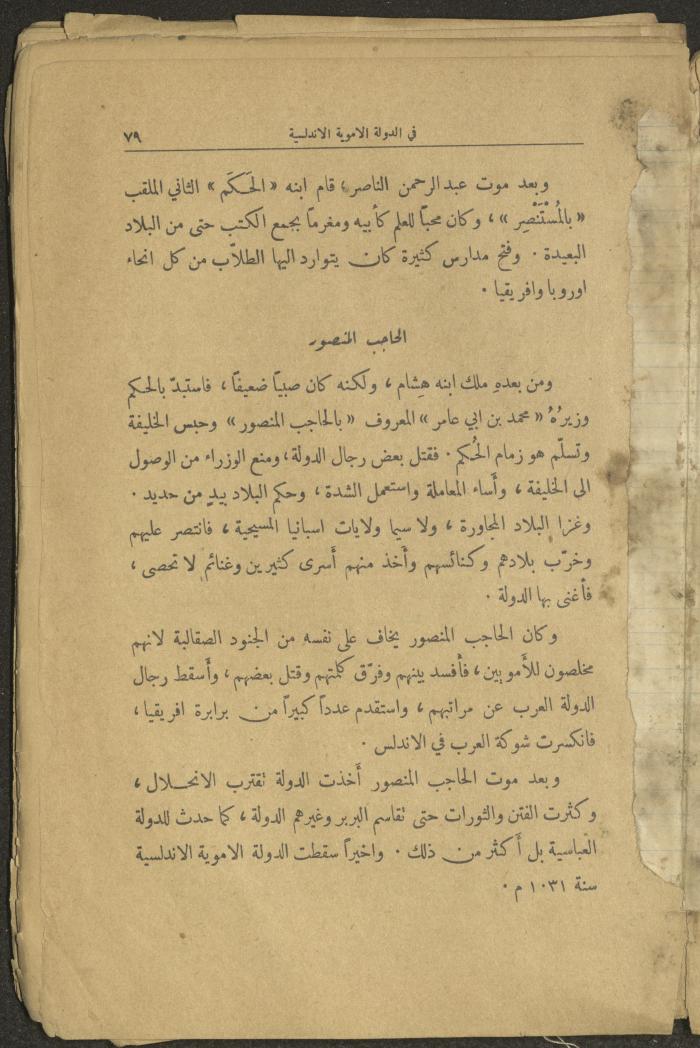 في الدولة الاموية الاندلسية ٧٩
وبعد موت عبد الرحمن الناصر، قام ابنه «الحَكَم» الثاني الملقب
«بالمُسْتَنْصِر»، وكان محبّاً للعلم كأبيه ومغرماً بجمع الكتب حتى من البلاد
البعيدة. وفتح مدارس كثيرة كان يتوارد اليها الطلاّب من كل انحاء
اوروبا وافريقيا.
الحاجب المنصور
ومن بعدهِ ملك ابنه هِشام، ولكنه كان صبيّاً ضعيفاً، فاستبدّ بالحكم
وزيرُهُ «محمد بن ابي عامر» المعروف «بالحاجب المنصور» وحبس الخليفة
وتسلّم هو زمام الحُكم. فقتل بعض رجال الدولة، ومنع الوزراء من الوصول
الى الخليفة، وأَساء المعاملة واستعمل الشدة، وحكم البلاد بيدٍ من حديد.
وغزا البلاد المجاورة، ولا سيما ولايات اسبانيا المسيحية، فانتصر عليهم
وخرّب بلادهم وكنائسهم وأَخذ منهم أَسرى كثيرين وغنائم لا تحصى،
فأَغنى بها الدولة.
وكان الحاجب المنصور يخاف على نفسه من الجنود الصقالبة لانهم
مخلصون للأَمويين، فأَفسد بينهم وفرّق كلمتهم وقتل بعضهم، وأَسقط رجال
الدولة العرب عن مراتبهم، واستقدم عدداً كبيراً من برابرة افريقيا،
فانكسرت شوكة العرب في الاندلس.
وبعد موت الحاجب المنصور أَخذت الدولة تقترب الانحلال،
وكثرت الفتن والثورات حتى تقاسم البربر وغيرهم الدولة، كما حدث للدولة
العباسية بل أَكثر من ذلك. واخيراً سقطت الدولة الاموية الاندلسية
سنة ١٠٣١ م.